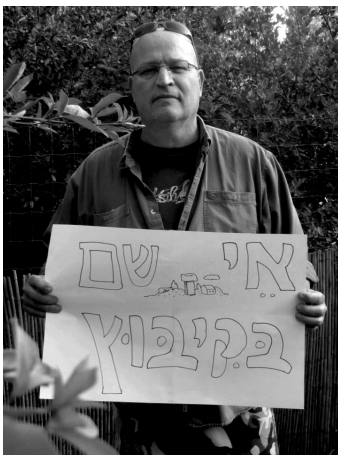 אֵי שם
בּקִיבּוּץ